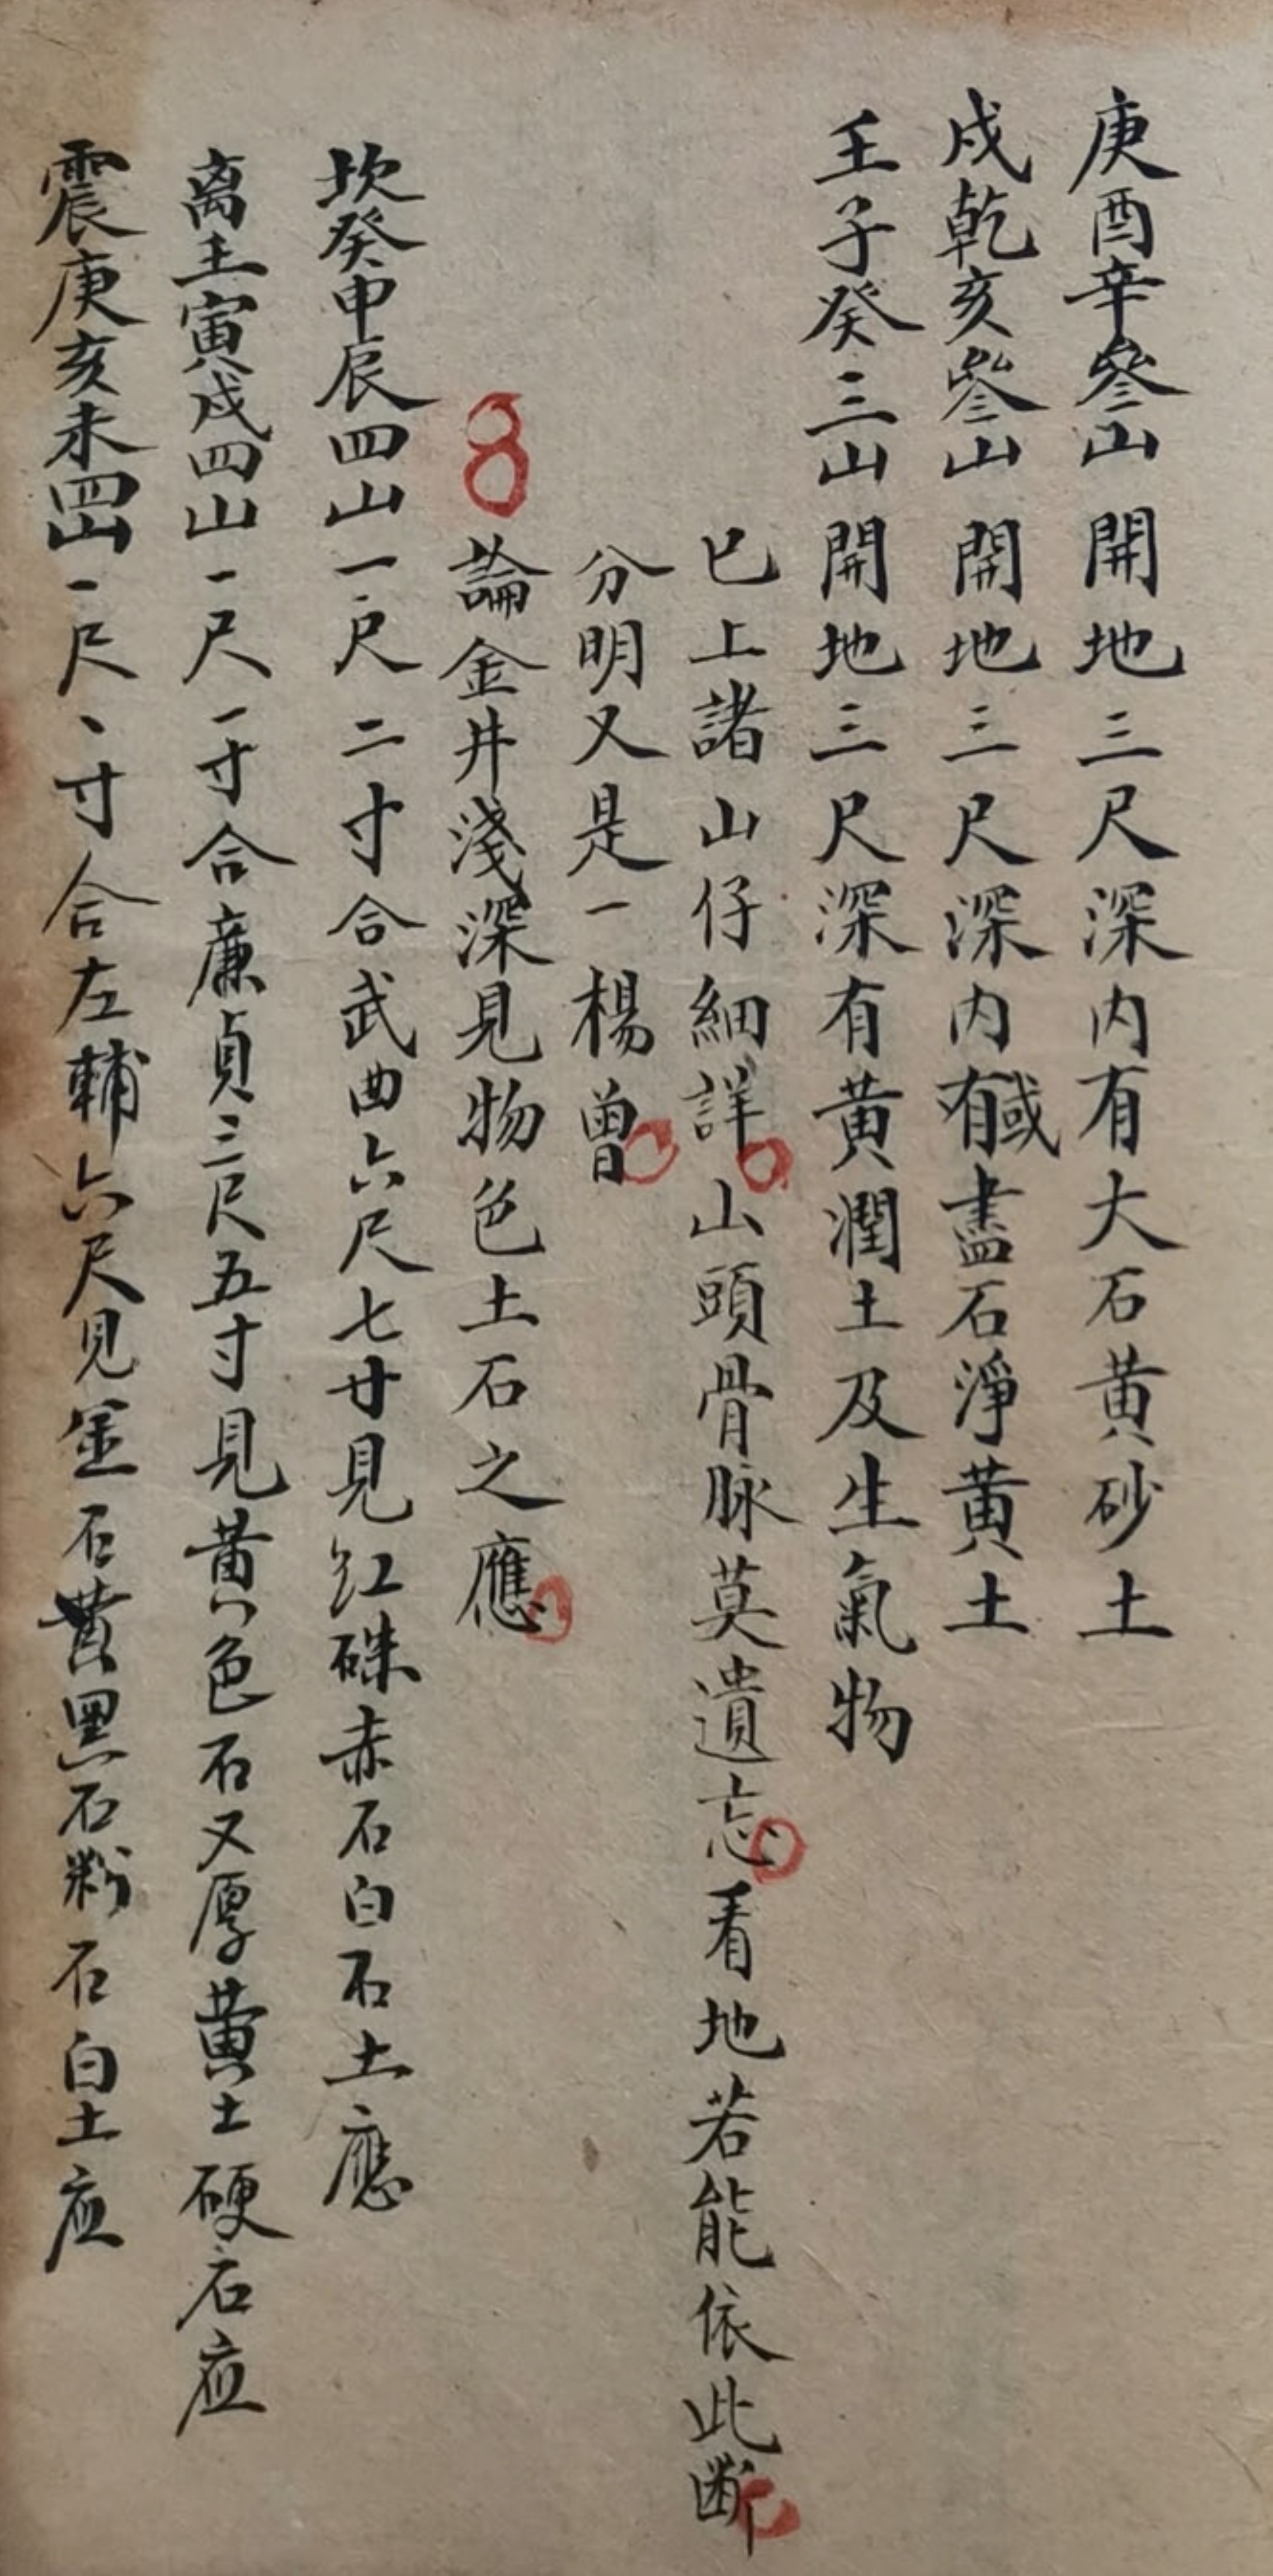 庚酉辛叄山開地三尺深内有大石黄砂土
戍乾亥叄山開地三尺深内有或盡石淨黄土
壬子癸三山開地三尺深有黄潤土及生氣物
已上諸山仔細詳山頭骨脉莫遺忘看地若能依此断
分明又是一楊曽
論金井淺深見物色土石之應
坎癸申辰四山一尺二寸合武曲六尺七寸見红硃赤石白石土應
离壬寅戍四山一尺一寸合廉貞三尺五寸見黄色石又厚黄土硬石应
震庚亥未四山一尺丶寸合左輔六尺見金石黄黑石粉石白土应